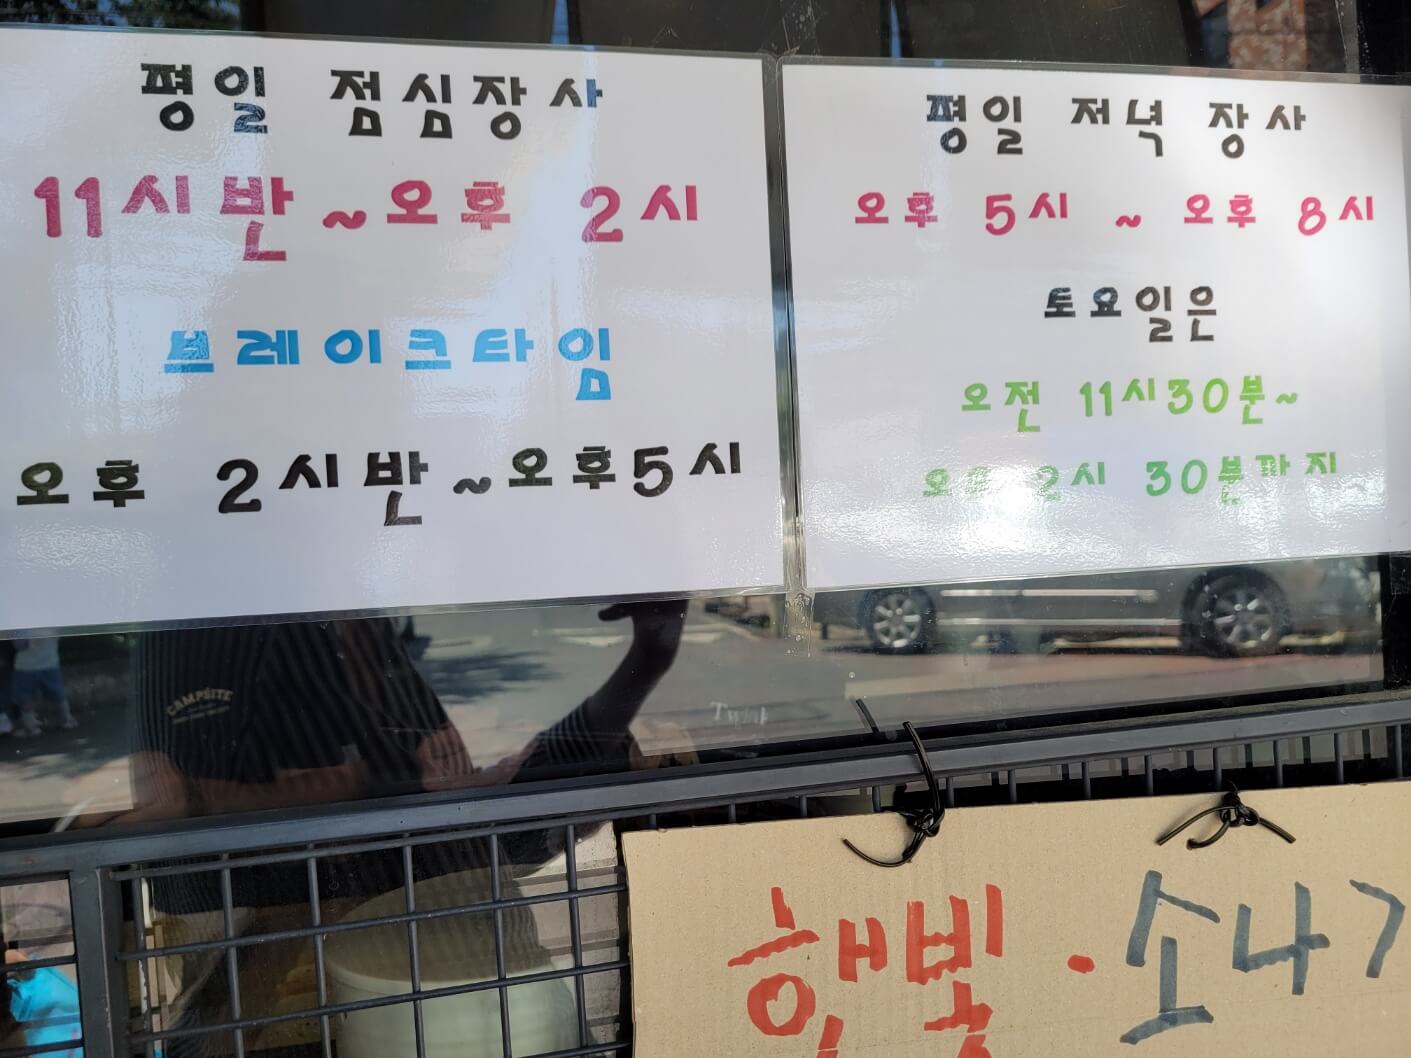 평일 점심장사
11시 반~오후 2시
브레이크타임
오후 2시반~오후5시
평일 저녁 장사
오후 5시 ~ 오후 8시
토요일은
오전 11시30분~
오후 2시 30분까지
CAMPSITE
햇빛·소나기